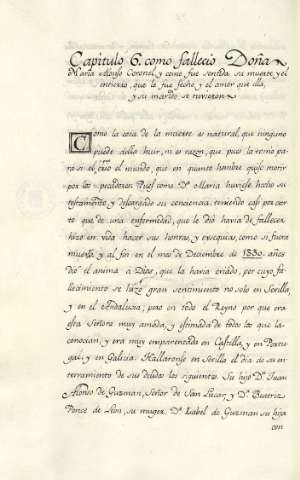 Capitulo 6. como fallecio Doña
Maria Alfonso Coronel, y como fue sentida su muerte, y el
entierro, que le fue fecho, y el amor que ella,
y su marido se tuvieron
Como la cosa de la muerte es natural, que ninguno
puede della huir, ni es razon, que pues la reyno pa-
ra si el el mundo, que en quanto hombre quiso morir
por los pecadores. Pues como D.ª Maria huviese hecho su
testamento, y descargado su conciencia, teniendo casi por cier
to que de una enfermedad, que le dió havia de fallecer
hizo en vida hacer sus honras, y exequias, como si fuera
muerta, y al fin en el mes de Deciembre de 1330. años
dió el anima a Dios, que la havia criado, por cuyo fa-
llecimiento se hizo gran sentimiento no solo en Sevilla,
y en el Andalucia; pero en todo el Reyno por que era
esta Señora muy amada, y estimada de todos los que la
conocian, y era muy emparentada en Castilla, y en Portu-
gal, y en Galicia. Hallaronse en Sevilla el dia de su en-
terramiento de sus deudos los siguientes. Su hijo D.ⁿ Juan
Alonso de Guzman, Señor de San Lucar, y D.ª Beatriz
Ponce de Leon, su muger. D.ª Isabel de Guzman su hija
con